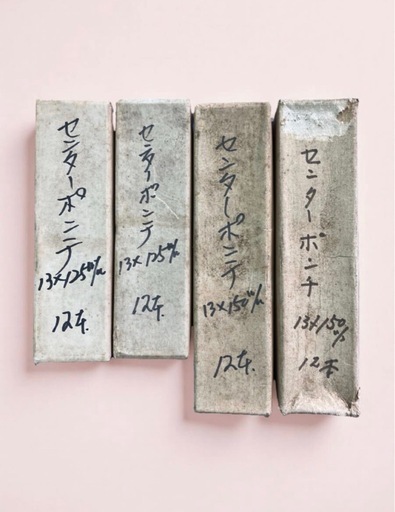 センターポンチ
13×125m/m
12本.
センターポンチ
13×125m/m
12本.
センターポンチ
13×150m/m
12本.
センターポンチ
13×150m/m
12本